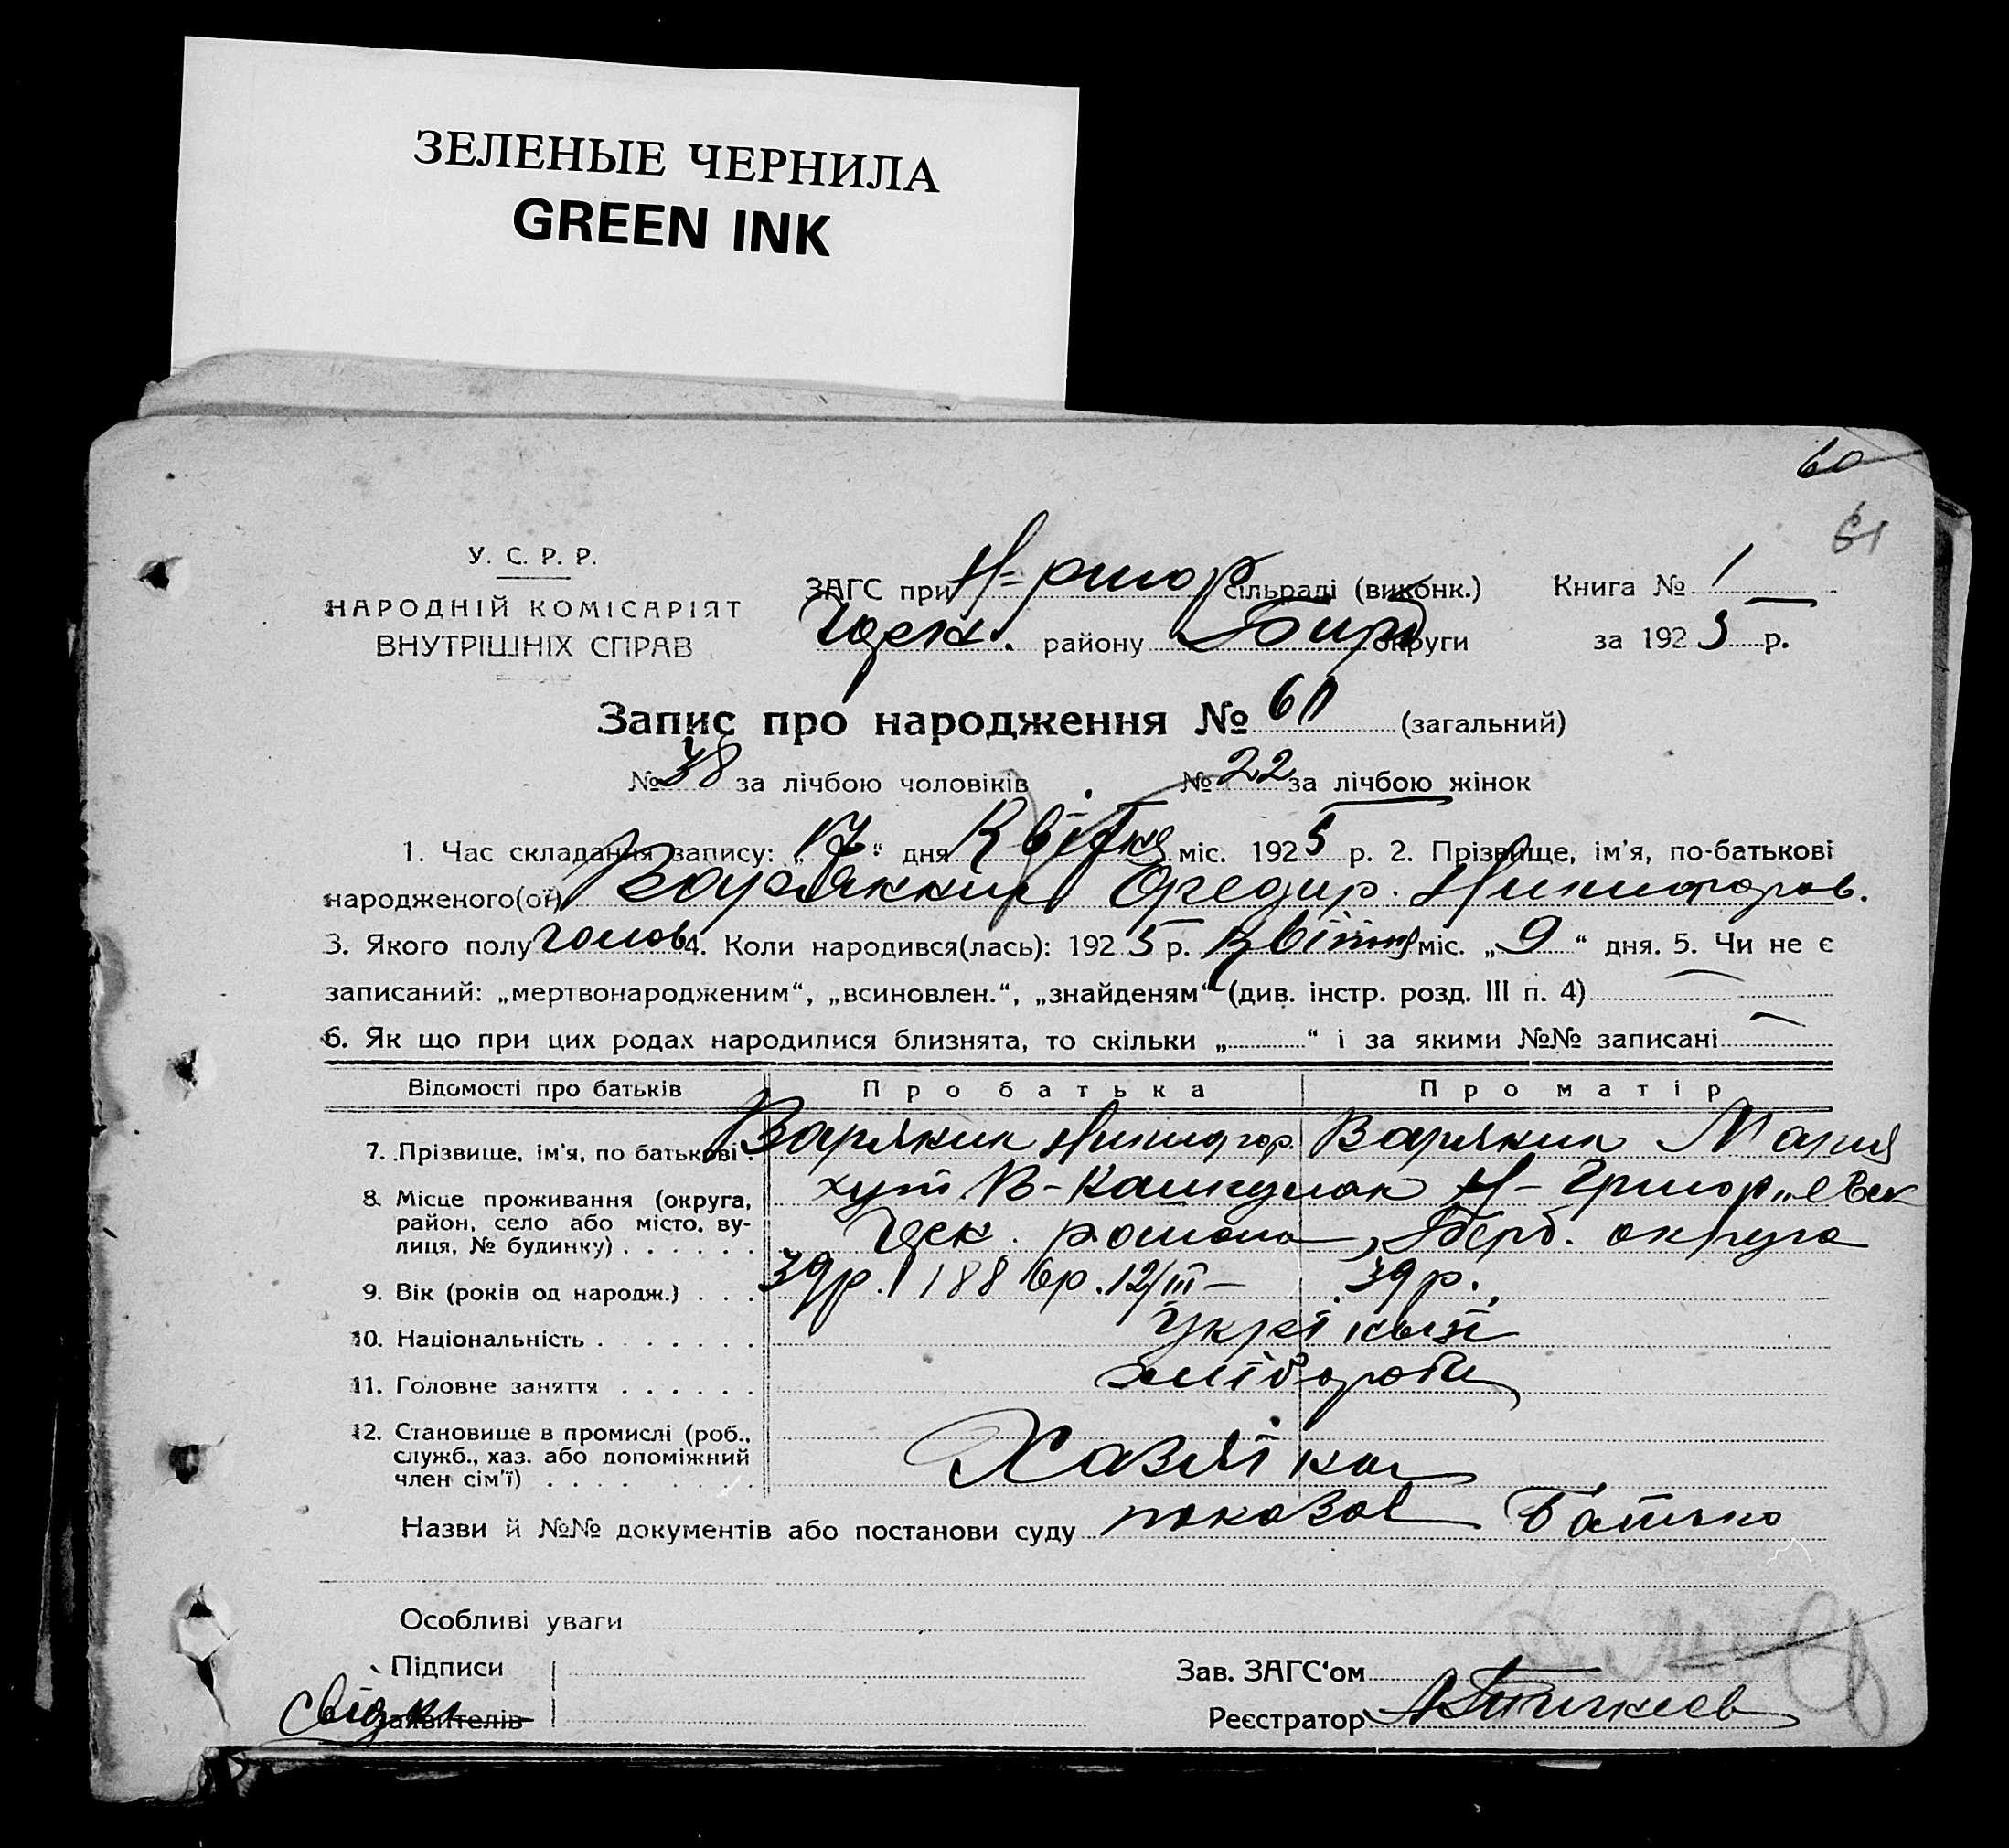 ЗЕЛЕНЫЕ ЧЕРНИЛА
GREEN INK
60
61
У. С. Р. Р.
НАРОДНІЙ КОМІСАРІЯТ
ВНУТРІШНІХ СПРАВ
ЗАГС при Н-Григор сільраді (виконк.) Книга № 1
району округи за 1925 р.
Запис про народження № 60 (загальний)
№ 38 за лічбою чоловіків № 22 за лічбою жінок
1. Час складання запису: „17“ дня Квітня міс. 1925 р. 2. Прізвище, ім'я, по-батькові
народженого(ої) Никифоров.
3. Якого полу чолов 4. Коли народився(лась): 1925 р. Квітня міс. „9“ дня. 5. Чи не є
записаний: „мертвонародженим“, „всиновлен.“, „знайденям“ (див. інстр. розд. III п. 4)
6. Як що при цих родах народилися близнята, то скільки „ “ і за якими №№ записані
Відомості про батьків Про батька Про матір
7. Прізвище, ім'я, по батькові Варякин Никифор. Варякин Мария
8. Місце проживання (округа, район, село або місто, вулиця, № будинку) хут В- Н-Григориевск
района, Берд. округа
9. Вік (років од народж.) 39р. 1886р. 12/III – 39р.
10. Національність
11. Головне заняття хлібороби
12. Становище в промислі (роб., служб., хаз. або допоміжний член сім'ї) Хазяїка
Назви й №№ документів або постанови суду показав Батько
Особливі уваги
Підписи Зав. ЗАГС'ом
свідки заявителів Реєстратор